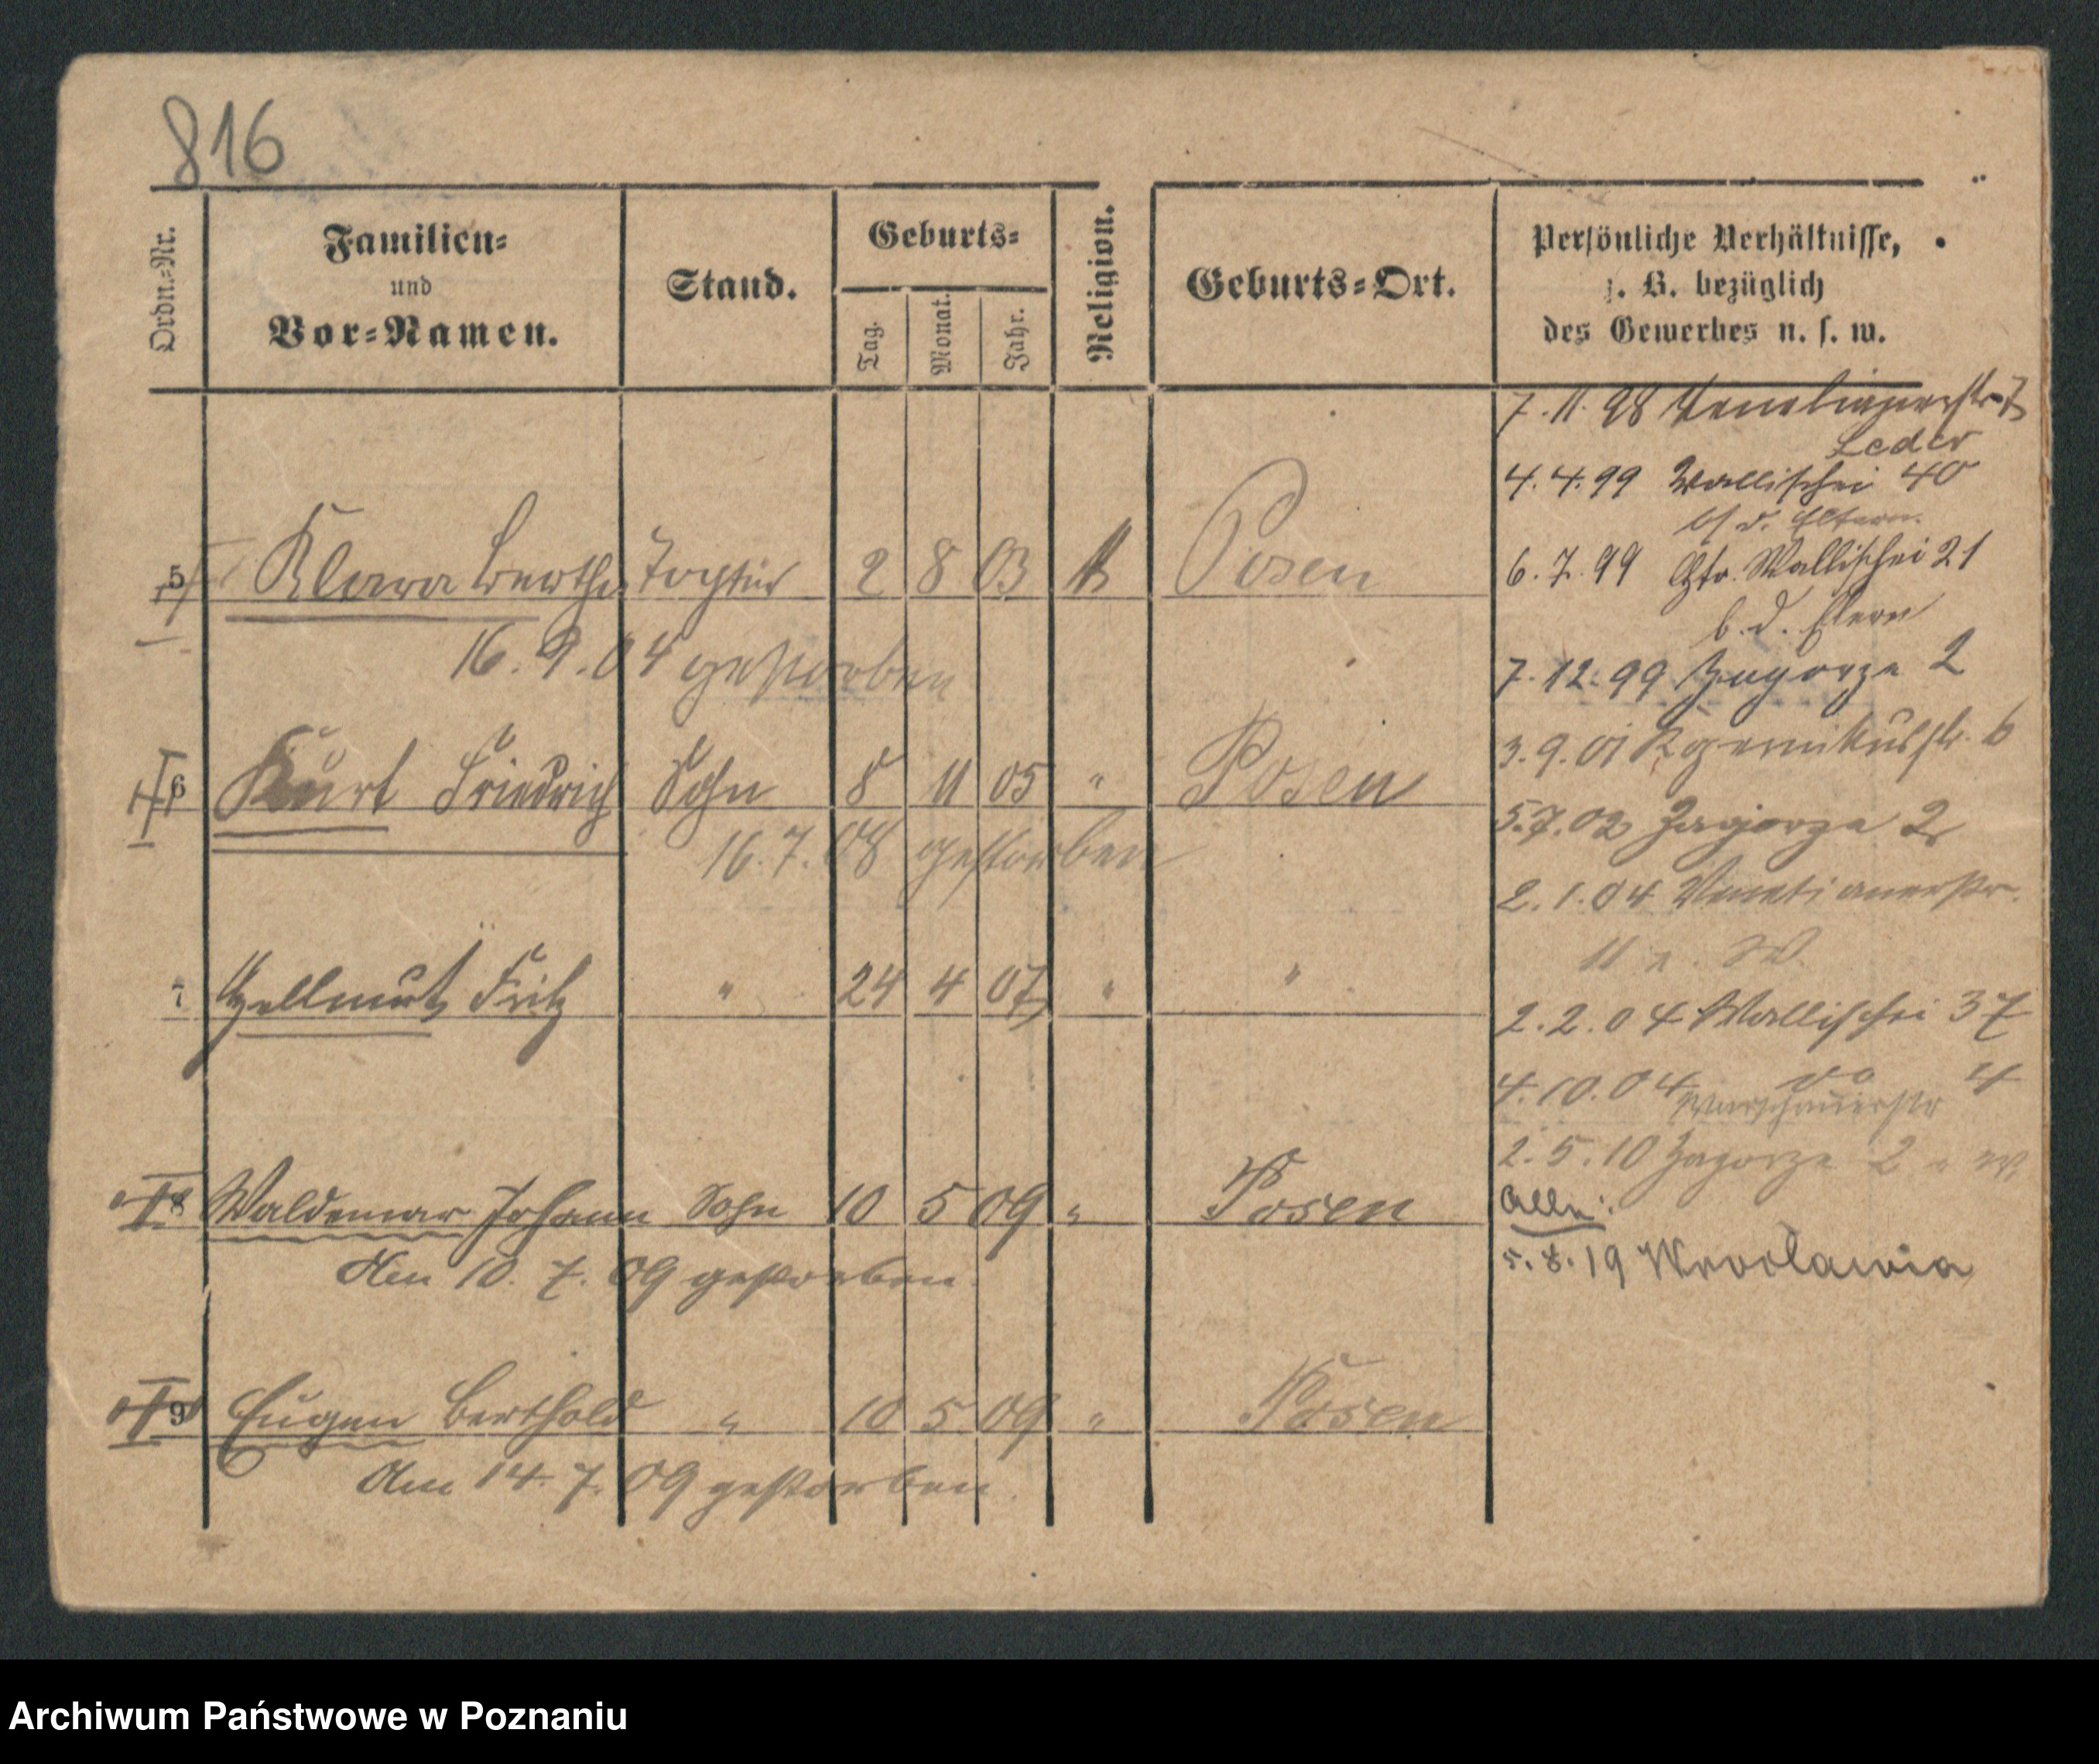 816
Ordn.-Nr.
Familien-
und
Vor-Namen.
Stand.
Geburts-
Tag.
Monat.
Jahr.
Religion.
Geburts-Ort.
Persönliche Verhältnisse,
z. B. bezüglich
des Gewerbes u. s. w.
5 Klara Bertha Tochter 2 8 03 Posen
16. 9. 04 gestorben
6 Kurt Friedrich Sohn 8 11 05 " Posen
16. 7. 08 gestorben
7 Hellmut Fritz " 24 4 07 " "
8 Waldemar Johann Sohn 10 5 09 " Posen
Am 10. 7. 09 gestorben.
9 Eugen Berthold " 10 5 09 " Posen
Am 14. 7. 09 gestorben.
7. 11. 98 Venetianerstr 7
Leder
4. 4. 99 Wallischei 40
b/ d. Eltern.
6. 7. 99 Wallischei 21
b. d. Eltern
7. 12. 99 Zagorze 2
3. 9. 01 6
5. 7. 02 Zagorze 2
2. 1. 04 Venetianerstr.
11
2. 2. 04 Wallischei 37
4. 10. 04 do 4
Warschauerstr
2. 5. 10 Zagorze 2
Alle:
5. 8. 19 Wrocławia
Archiwum Państwowe w Poznaniu